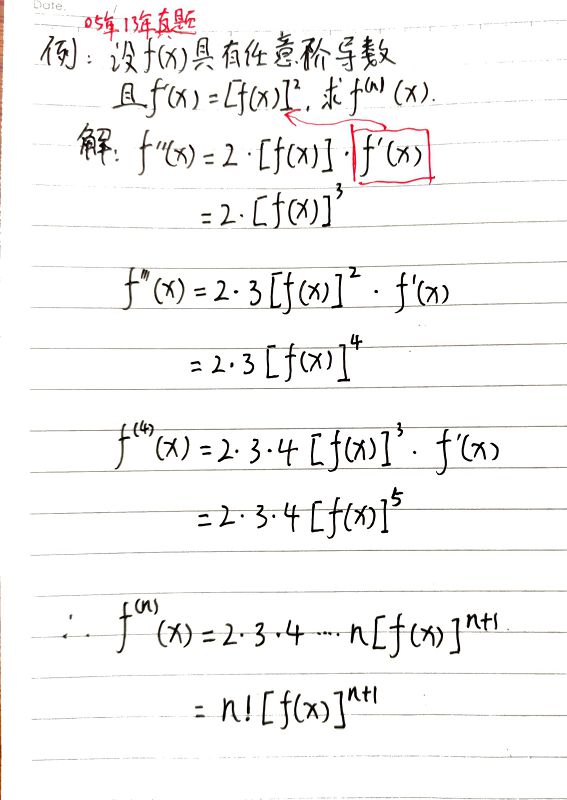 Date.
05年13年真题
例：设f(x)具有任意阶导数
且f'(x)=[f(x)]², 求f⁽ⁿ⁾(x).
解：f''(x)=2·[f(x)]·f'(x)
=2·[f(x)]³
f'''(x)=2·3[f(x)]²·f'(x)
=2·3[f(x)]⁴
f⁽⁴⁾(x)=2·3·4[f(x)]³·f'(x)
=2·3·4[f(x)]⁵
∴ f⁽ⁿ⁾(x)=2·3·4····n[f(x)]ⁿ⁺¹
=n![f(x)]ⁿ⁺¹